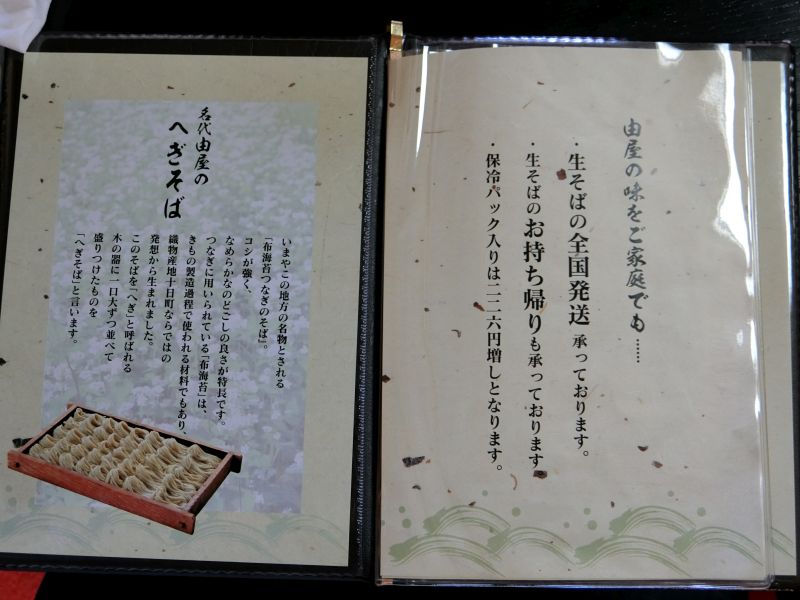 名代由屋の
へぎそば
いまやこの地方の名物とされる
「布海苔つなぎのそば」。
コシが強く、
なめらかなのどごしの良さが特長です。
つなぎに用いられている「布海苔」は、
きもの製造過程で使われる材料でもあり、
織物産地十日町ならではの
発想から生まれました。
このそばを「へぎ」と呼ばれる
木の器に一口大ずつ並べて
盛りつけたものを
「へぎそば」と言います。
由屋の味をご家庭でも……
・生そばの全国発送 承っております。
・生そばのお持ち帰りも承っております
・保冷パック入りは二二六円増しとなります。